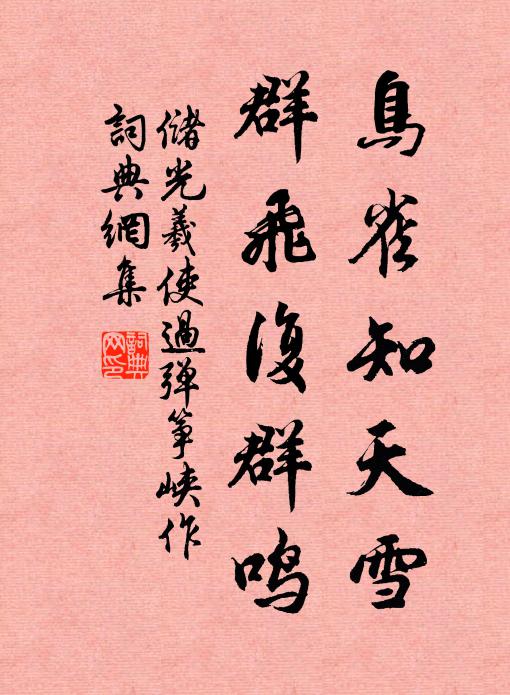 鳥雀知天雪
群飛復群鳴
儲光羲使過彈箏峽作
詞典網集
詞典
网印